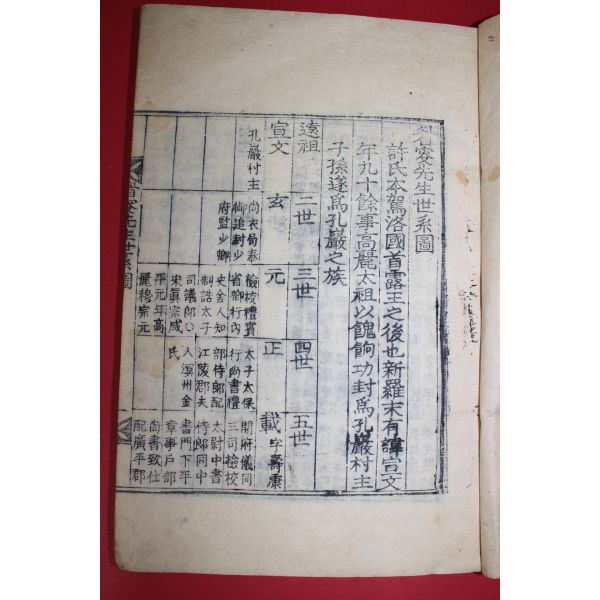 省窩先生世系圖
許氏本駕洛國首露王之後也新羅末有諱宣文
年九十餘事高麗太祖以餽餉功封爲孔巖村主
子孫遂爲孔巖之族
遠祖
二世
三世
四世
五世
宣文
玄
元
正
載 字壽康
孔巖村主
尚衣奉
御追封少
府監少卿
檢校禮賓
省卿行內
史舍人知
制誥太子
司議郎
宋眞宗咸
平元年高
麗穆宗元
太子太保
行尚書禮
部侍郎配
江陵郡夫
人溟州金
氏
開府儀同
三司檢校
太尉中書
侍郎同中
書門下平
章事戶部
尚書致仕
配廣平郡
先生世系圖